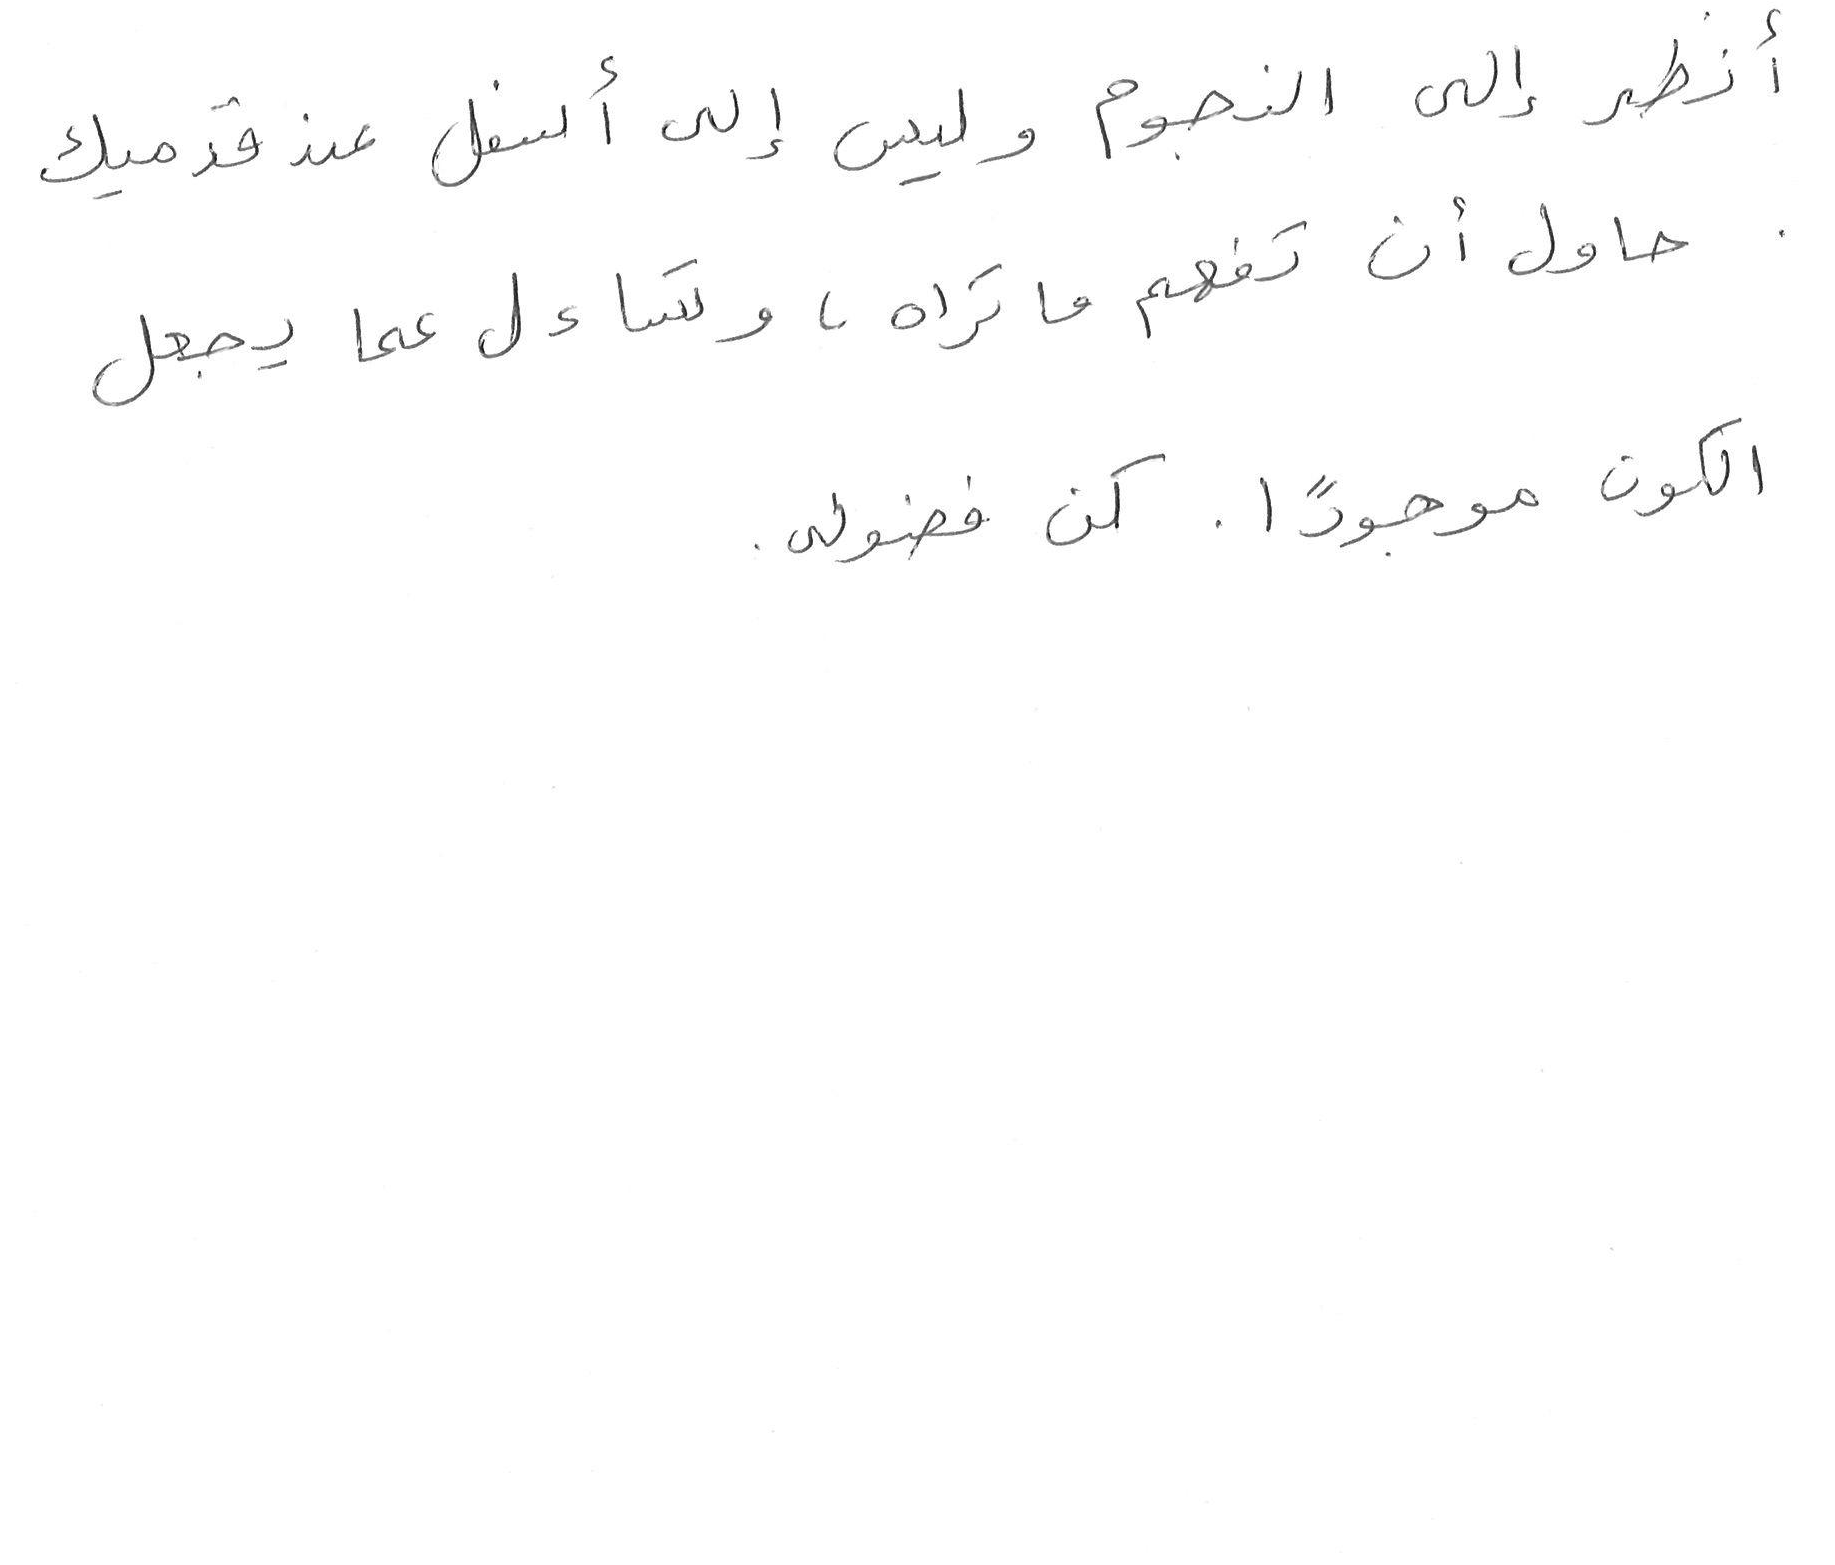 أنظر إلى النجوم وليس إلى أسفل عند قدميك
. حاول أن تفهم ما تراه، وتساءل عما يجعل
الكون موجودًا. كن فضولى.